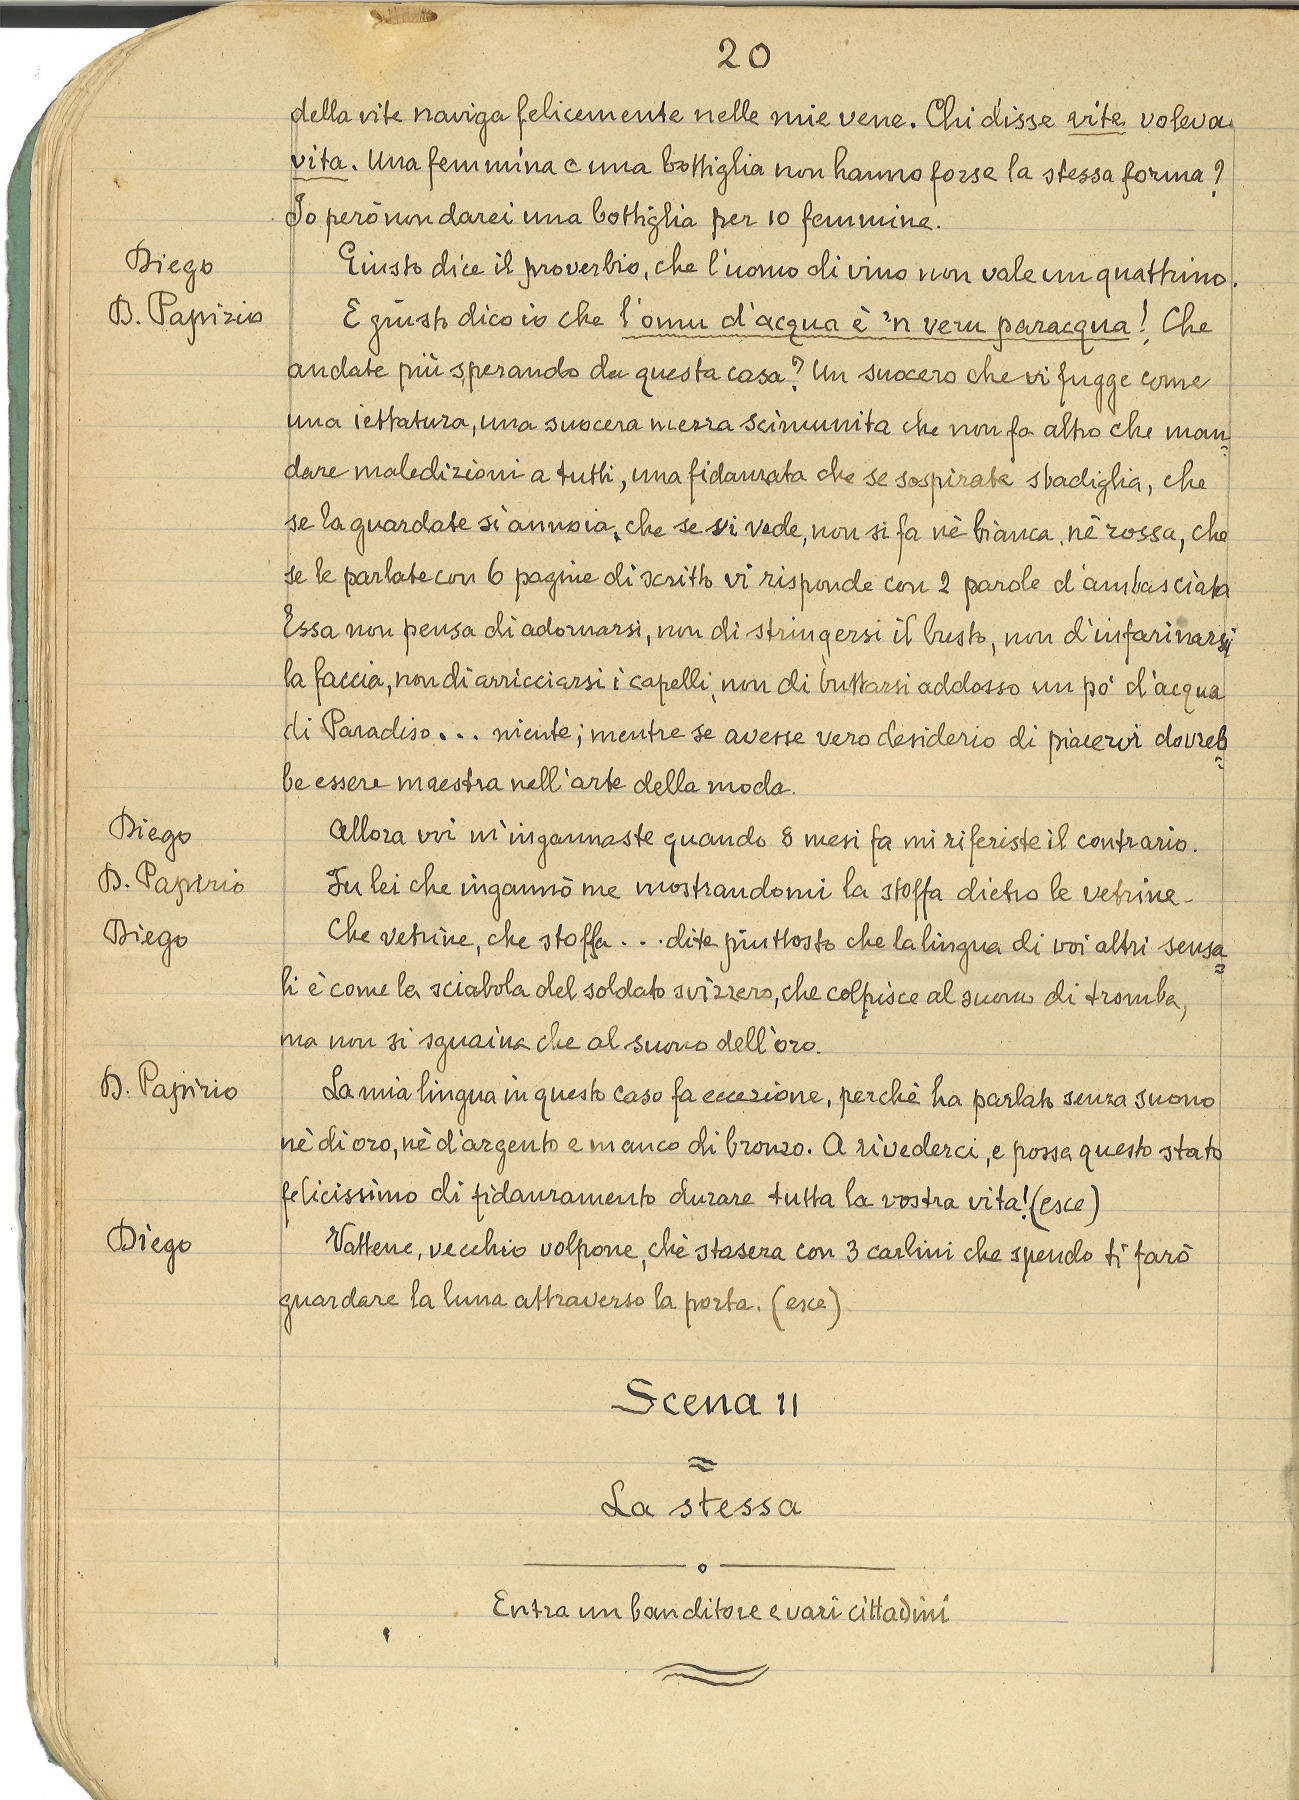 20
della vite naviga felicemente nelle mie vene. Chi disse vite voleva
vita. Una femmina e una bottiglia non hanno forse la stessa forma?
Io però non darei una bottiglia per 10 femmine.
Diego Giusto dice il proverbio, che l'uomo di vino non vale un quattrino.
D. Papirio E giusto dico io che l'omu d'acqua è 'n veru paracqua! Che
andate più sperando da questa casa? Un suocero che vi fugge come
una iettatura, una suocera mezza scimunita che non fa altro che man=
dare maledizioni a tutti, una fidanzata che se sospirate sbadiglia, che
se la guardate si annoia, che se vi vede, non si fa nè bianca, nè rossa, che
se le parlate con 6 pagine di scritto vi risponde con 2 parole d'ambasciata
Essa non pensa di adornarsi, non di stringersi il busto, non d'infarinarsi
la faccia, non di arricciarsi i capelli, non di buttarsi addosso un po' d'acqua
di Paradiso... niente; mentre se avesse vero desiderio di piacervi dovreb=
be essere maestra nell'arte della moda.
Diego Allora voi m'ingannaste quando 8 mesi fa mi riferiste il contrario.
D. Papirio Fu lei che ingannò me mostrandomi la stoffa dietro le vetrine.
Diego Che vetrine, che stoffa... dite piuttosto che la lingua di voi altri sensa=
li è come la sciabola del soldato svizzero, che colpisce al suono di tromba,
ma non si sguaina che al suono dell'oro.
D. Papirio La mia lingua in questo caso fa eccezione, perchè ha parlato senza suono
nè di oro, nè d'argento e manco di bronzo. A rivederci, e possa questo stato
felicissimo di fidanzamento durare tutta la vostra vita! (esce)
Diego Vattene, vecchio volpone, chè stasera con 3 carlini che spendo ti farò
guardare la luna attraverso la porta. (esce)
Scena 11
La stessa
Entra un banditore e vari cittadini